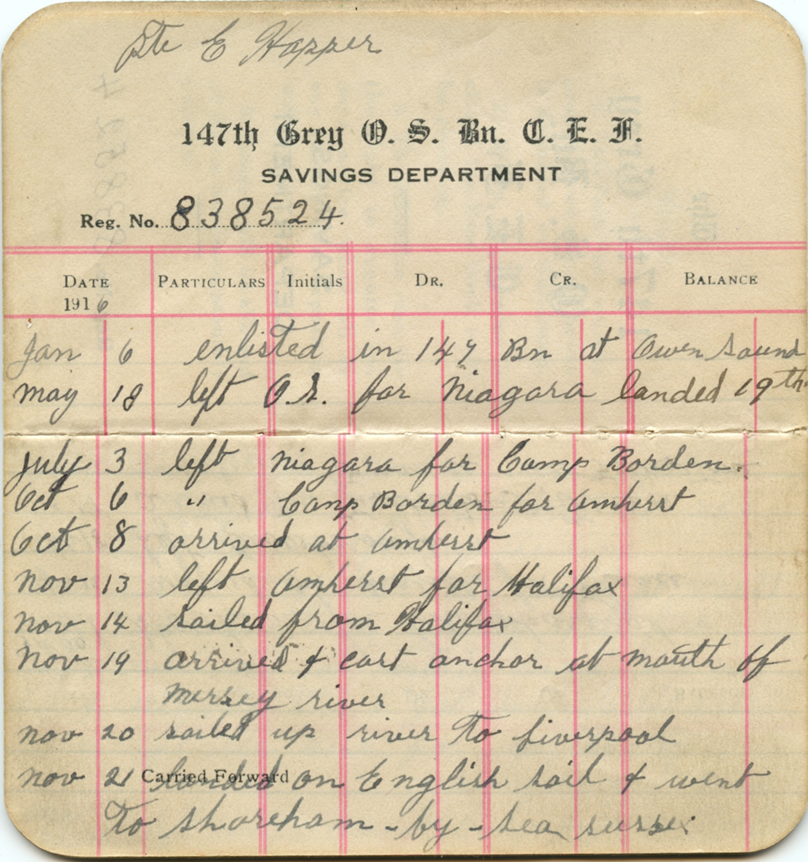 Pte E Happer
147th Grey O. S. Bn. C. E. F.
SAVINGS DEPARTMENT
Reg. No. 838524.
DATE PARTICULARS Initials DR. CR. BALANCE
1916
Jan 6 enlisted in 147 Bn at Owen Sound
May 18 left O.S. for Niagara landed 19th
July 3 left Niagara for Camp Borden.
Oct 6 " Camp Borden for Amherst
Oct 8 arrived at Amherst
Nov 13 left Amherst for Halifax
Nov 14 sailed from Halifax
Nov 19 arrived & cast anchor at mouth of
Mersey river
Nov 20 sailed up river to Liverpool
Nov 21 landed on English soil & went
Carried Forward
to Shoreham-by-Sea Sussex